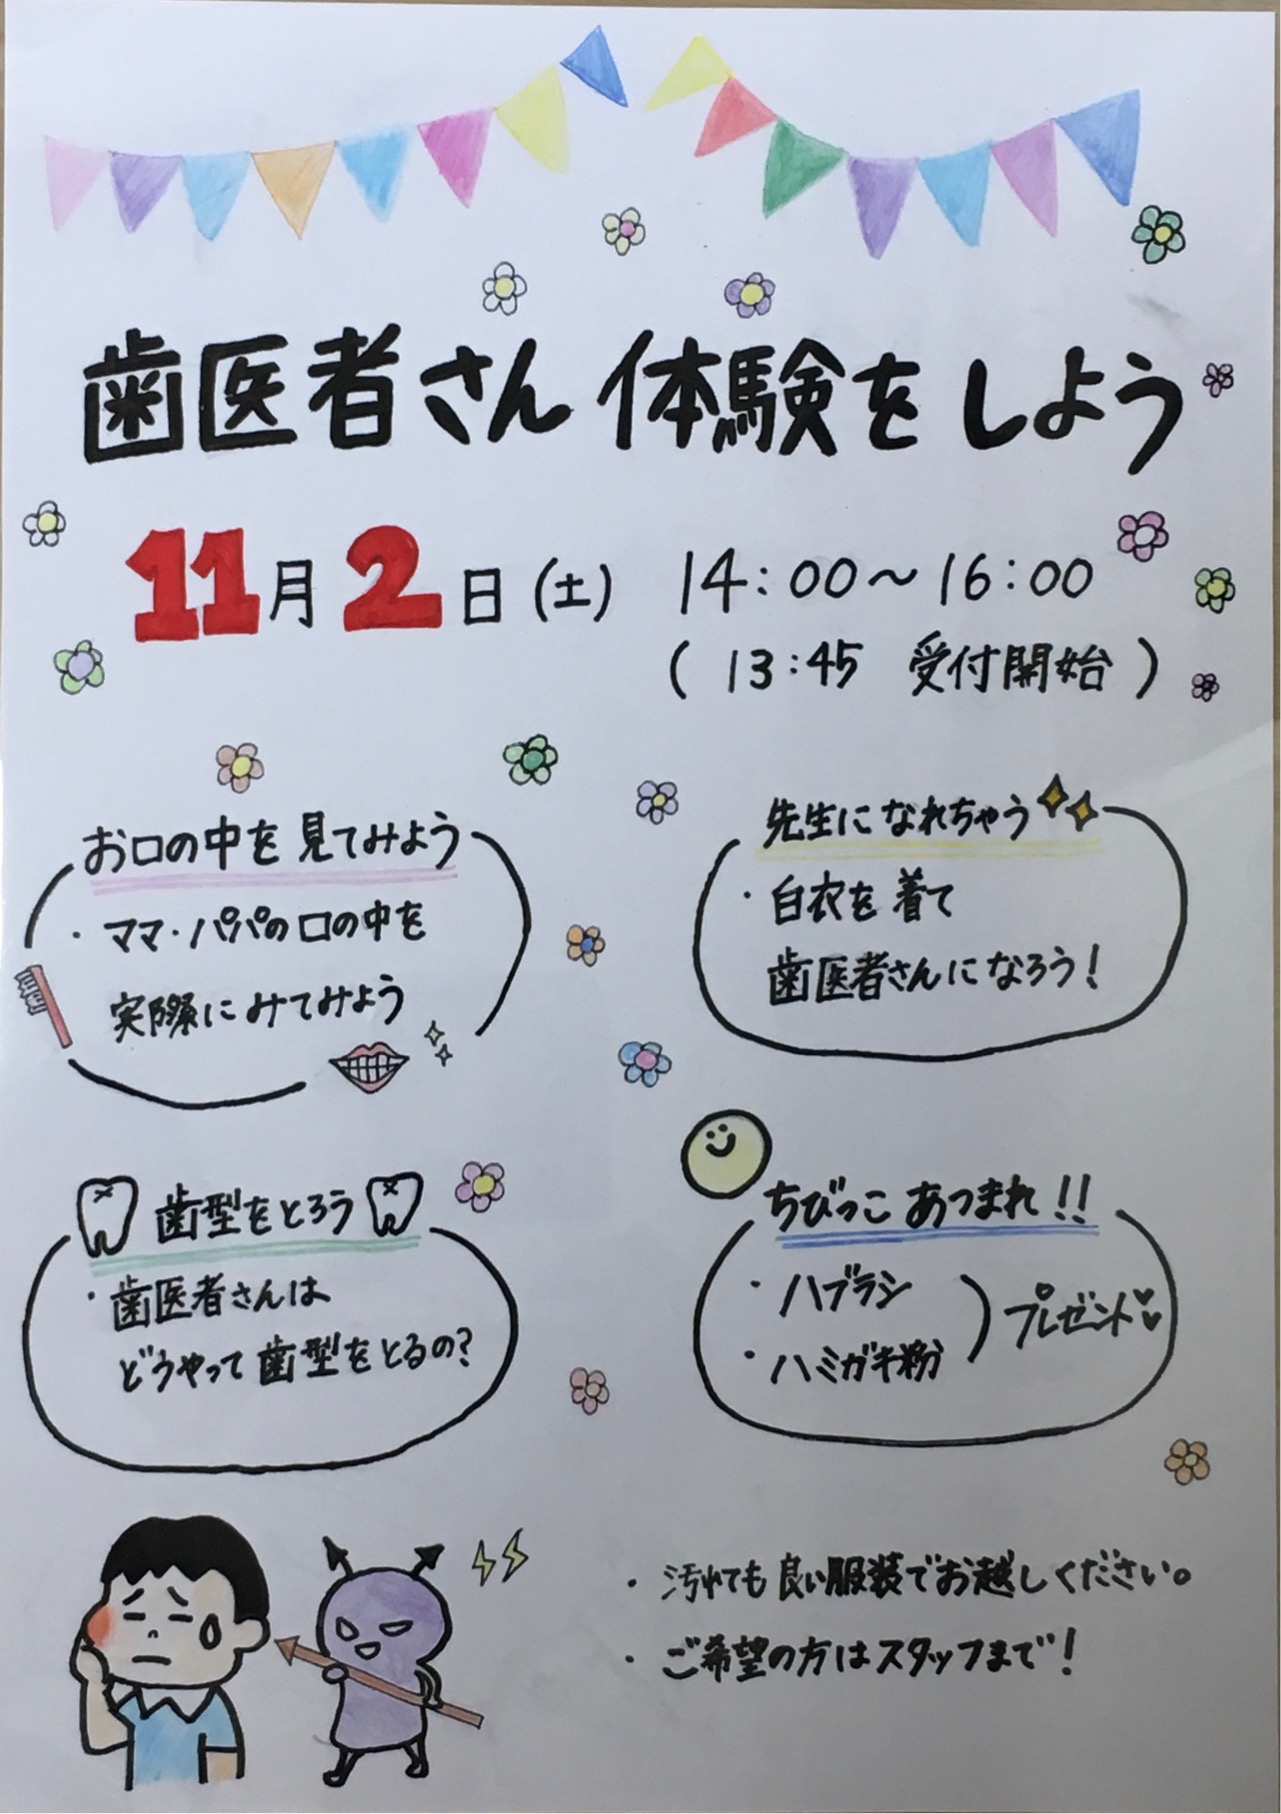 歯医者さん体験をしよう
11月2日(土) 14:00〜16:00
(13:45 受付開始)
お口の中を見てみよう
・ママ・パパの口の中を
実際にみてみよう
先生になれちゃう
・白衣を着て
歯医者さんになろう!
歯型をとろう
・歯医者さんは
どうやって歯型をとるの?
ちびっこあつまれ!!
・ハブラシ
・ハミガキ粉
プレゼント
・汚れても良い服装でお越しください。
・ご希望の方はスタッフまで!